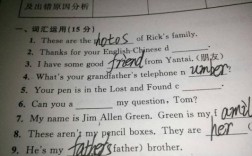 及出错原因分析
一、词汇运用(15分)
1. These are the photos of Rick's family.
2. Thanks for your English-Chinese d
3. I have some good friend from Yantai. (朋友)
4. What's your grandfather's telephone number?
5. Your pen is in the Lost and Found c
6. Can you a my question, Tom?
7. My name is Jim Allen Green. Green is my f amil
8. These aren't my pencil boxes. They are her
9. He's my fathers father) brother.